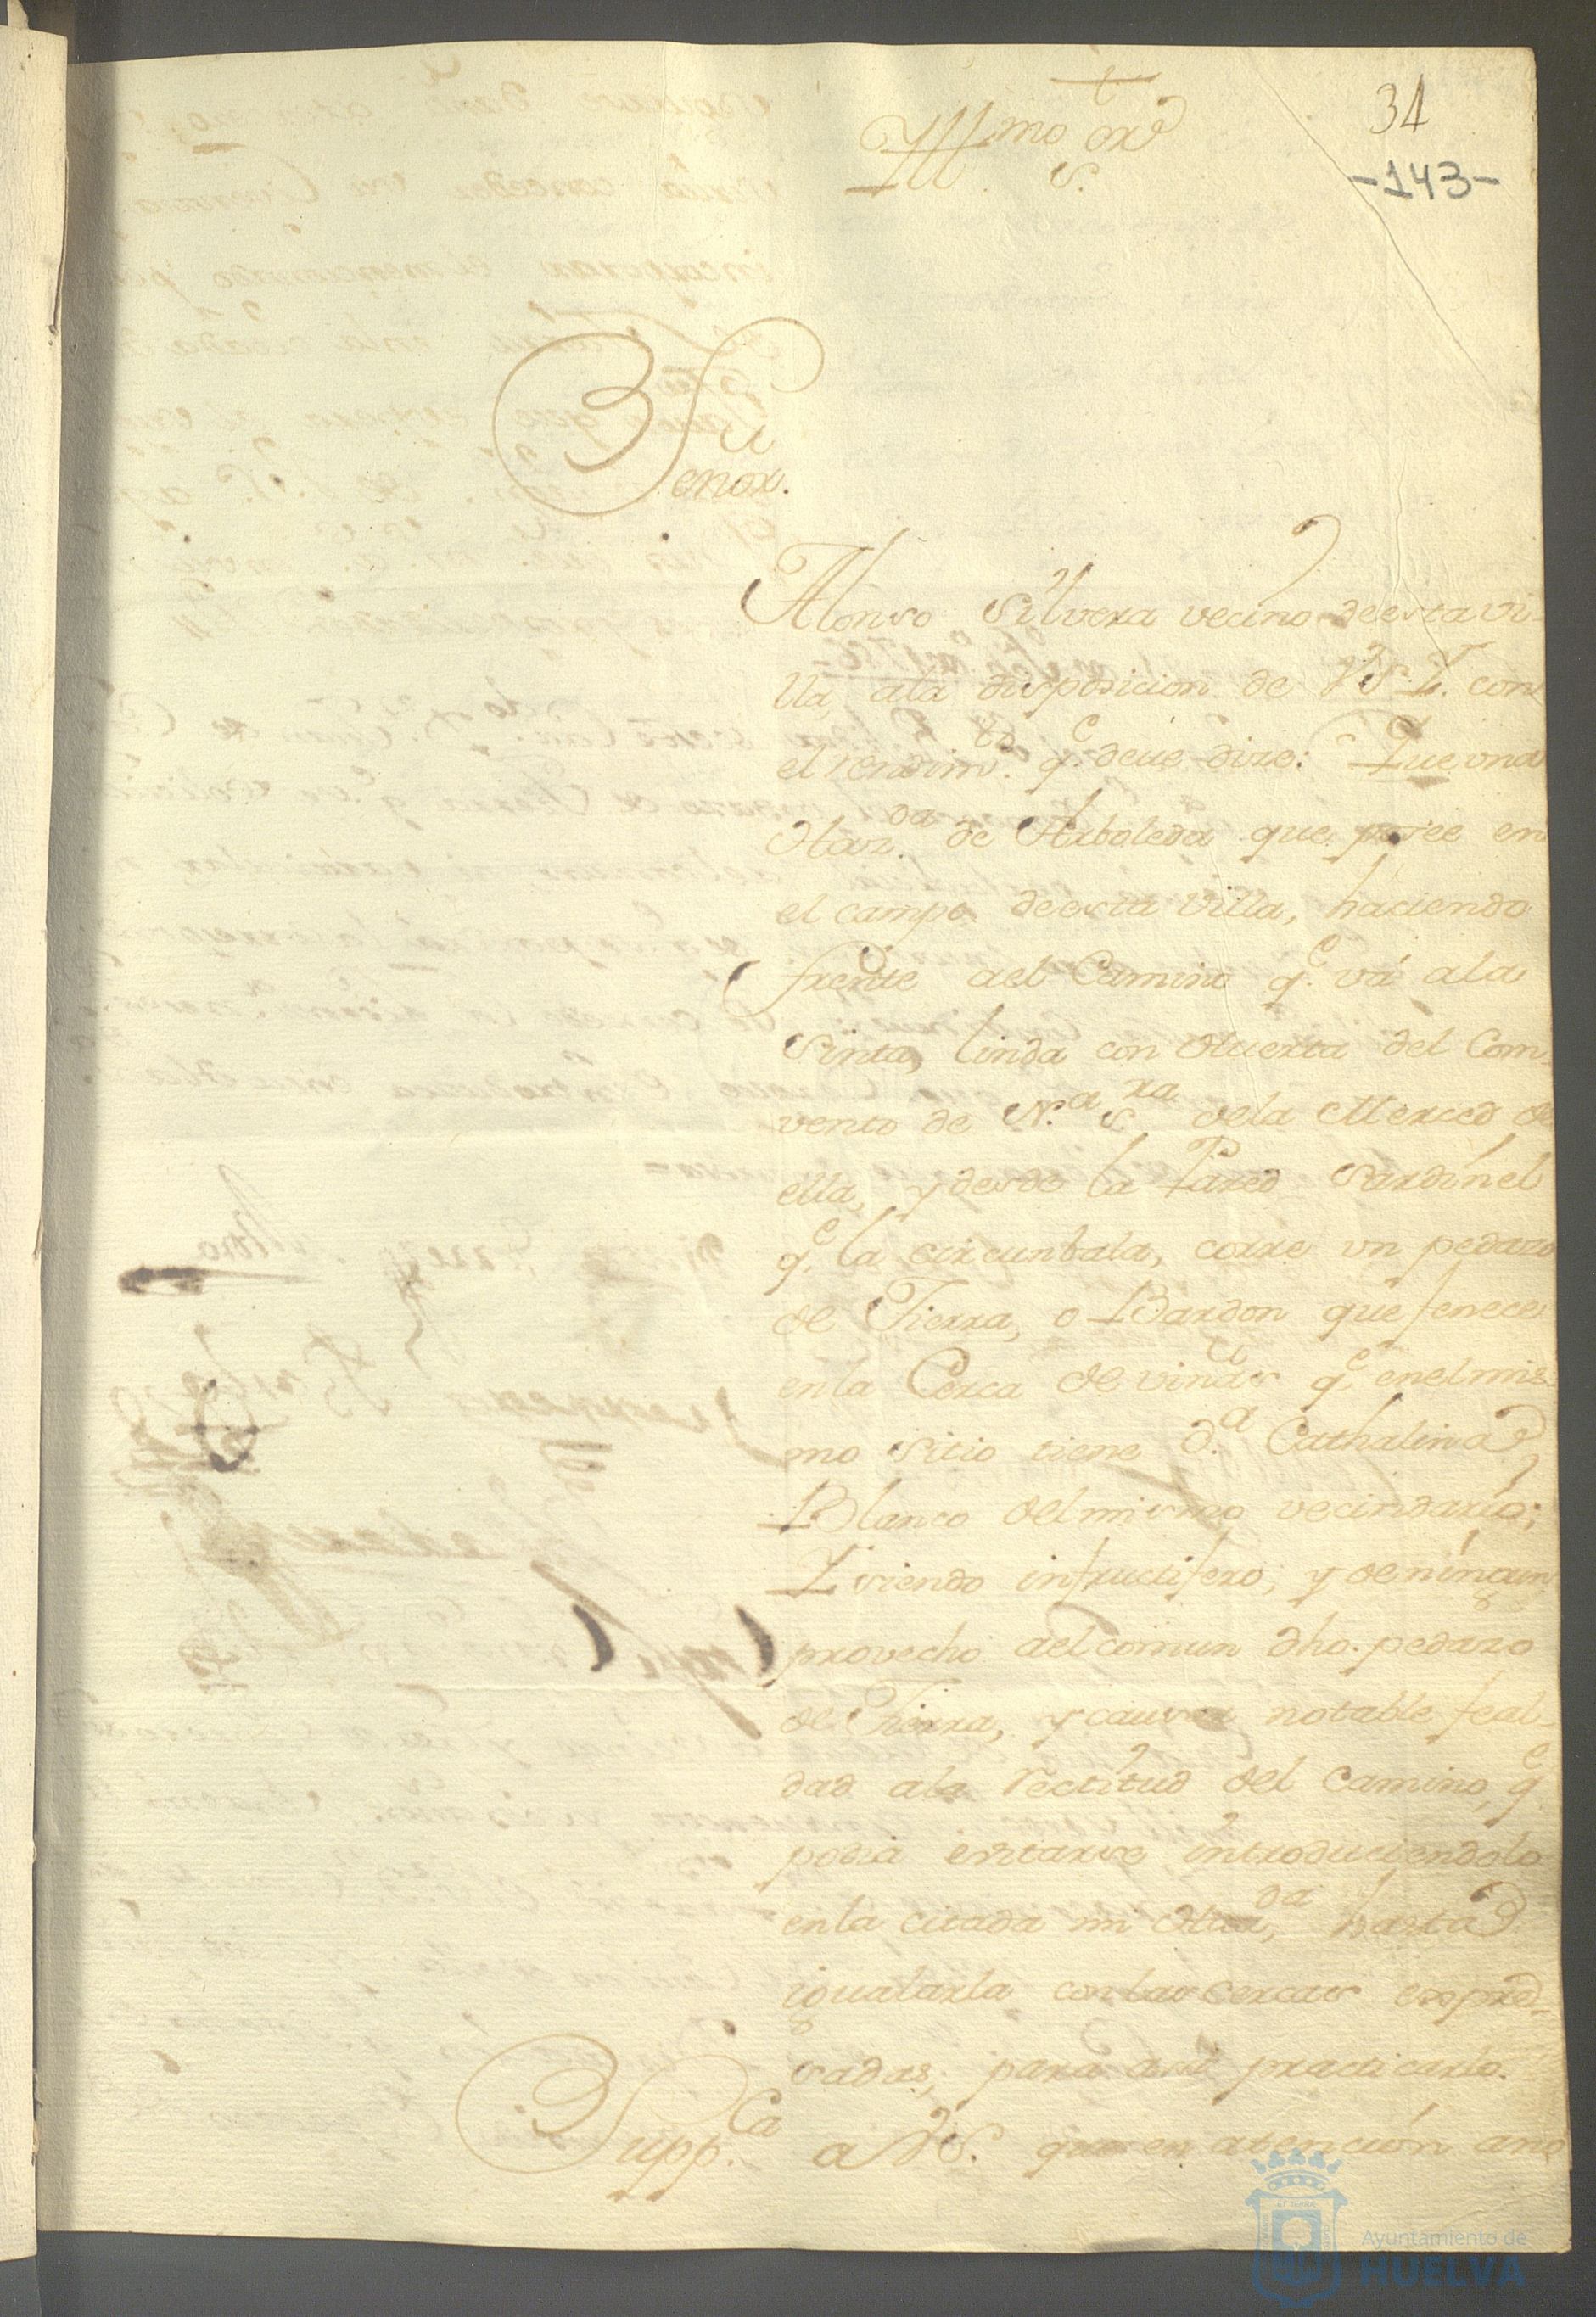 †
Yll.mo S.or
34
-143-
Señor.
Alonso Silvera vecino de esta vi-
lla, ala disposicion de V.S.Y. con
el rendim.to q.e deve dize: Que una
Haz.da de Arboleda que posee en
el campo de esta Villa, haciendo
frente ael Camino q.e vá ala
Sinta, linda con Huerta del Com-
vento de N.a S.ra de la Merced de
ella, y desde la Pared Sardinel
q.e la circunbala, corre un pedazo
de Tierra, o Bardon que fenece
en la Cerca de viñas q.e en el mis-
mo sitio tiene D.a Cathalina
Blanco del mismo vecindario;
Y siendo infructifero, y de ningun
provecho ael comun dho. pedazo
de Tierra, y causar notable feal-
dad ala rectitud del Camino, q.e
podia evitarse introduciendolo
en la citada mi Haz.da, hasta
igualarla con las cercas expre-
sadas; para asi practicarlo.
Supp.ca a V.S. que en atención ano
Ayuntamiento de
HUELVA